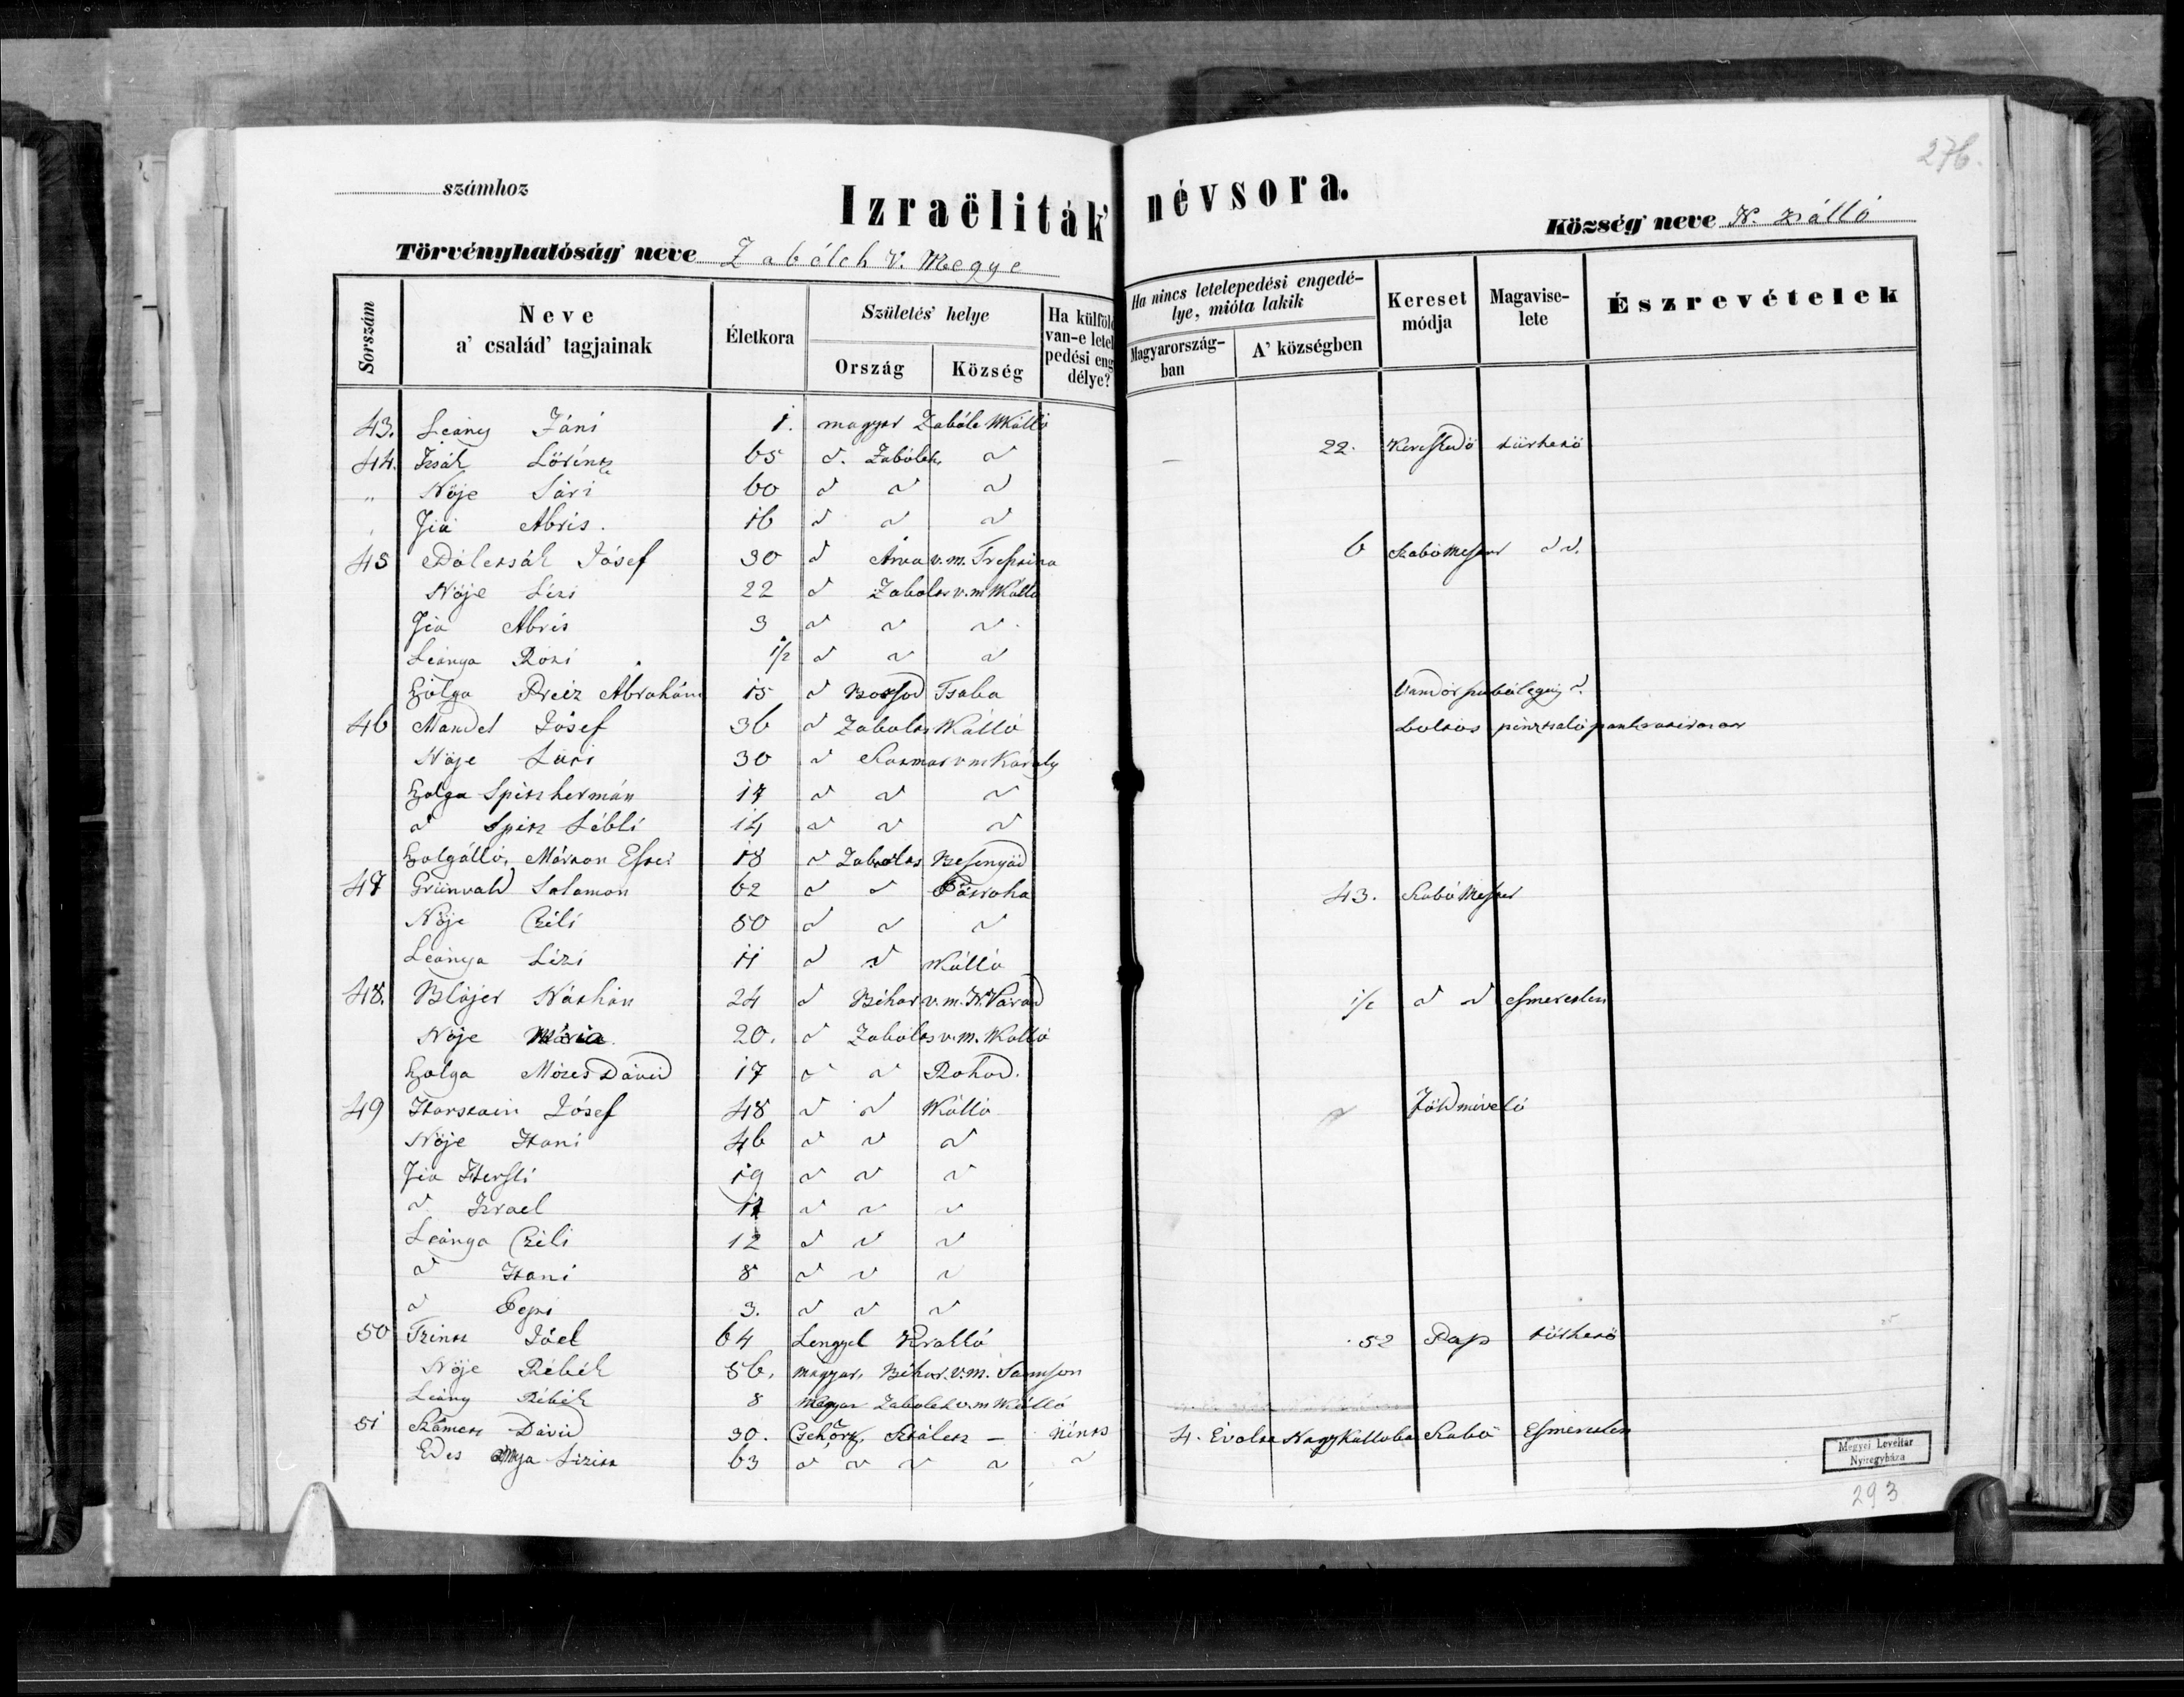 276.
számhoz
Izraëliták' névsora.
Törvényhatóság neve Zabólch V. Megye
Község neve N. Kálló
Sorszám
Neve a' család' tagjainak
Életkora
Születés' helye
Ország
Község
Ha külföl van-e letel pedési eng délye?
Ha nincs letelepedési engedélye, mióta lakik
Magyarországban
A' községben
Kereset módja
Magaviselete
Észrevételek
43. Leány Záni 1. magyar Zabólc Kálló
44. Izsák Lörintz 65 d. Zabólch d 22. Kereskedö türhetö
" Nöje Sári 60 d d d
Fia Abris. 16 d d d
45 Jósef 30 d Árva v.m. 6 Szabó Mester d d.
Nöje Lizi 22 d Zabolcs v.m Kálló
Fia Abris 3 d d d
Leánya Rózi 1/2 d d d
Szolga Abrahám 15 d Borsod Tsaba Vandor d.
46 Mandel Jósef 36 d Zabolcs Kálló
Nöje Sári 30 d Szatmar v m Károly
Szolga Spitz hermán 17 d d d
d Spitz Lébli 14 d d d
Szolgálló, Eszti 18 d Zabolcs Besenyöd
47 Grünvald Salamon 62 d d Pásroha 43. Szabó Mester
Nöje Czili 50 d d d
Leánya Lizi 11 d d Kálló
48. Blájer Náthán 24 d Bihar v.m. N Várad 1/2 d d esmeretlen
Nöje Mária 20. d Zabólcs v.m. Kálló
Szolga Mózes Dávid 17 d d Rohod.
49 Harstain Jósef 48 d d Kálló d Földmivelö
Nöje Hani 46 d d d
Fia Hersli 19 d d d
d Izrael 11 d d d
Leánya Czili 12 d d d
d Hani 8 d d d
d Pepi 3. d d d
50 Jóel 64 Lengyel 52 Pap türhetö
Nöje Rébék 56. magyar, Bihar. v.m. Samson
Leány Rébék 8 Magyar Zabolch v.m Kálló
51 Dávid 30. Cseh Örsz. — Nints 4. Évolta Nagy Kalloba Szabó Esmeretlen
Edes Anya 63 d d d d d
Megyei Levéltár
Nyiregyháza
293